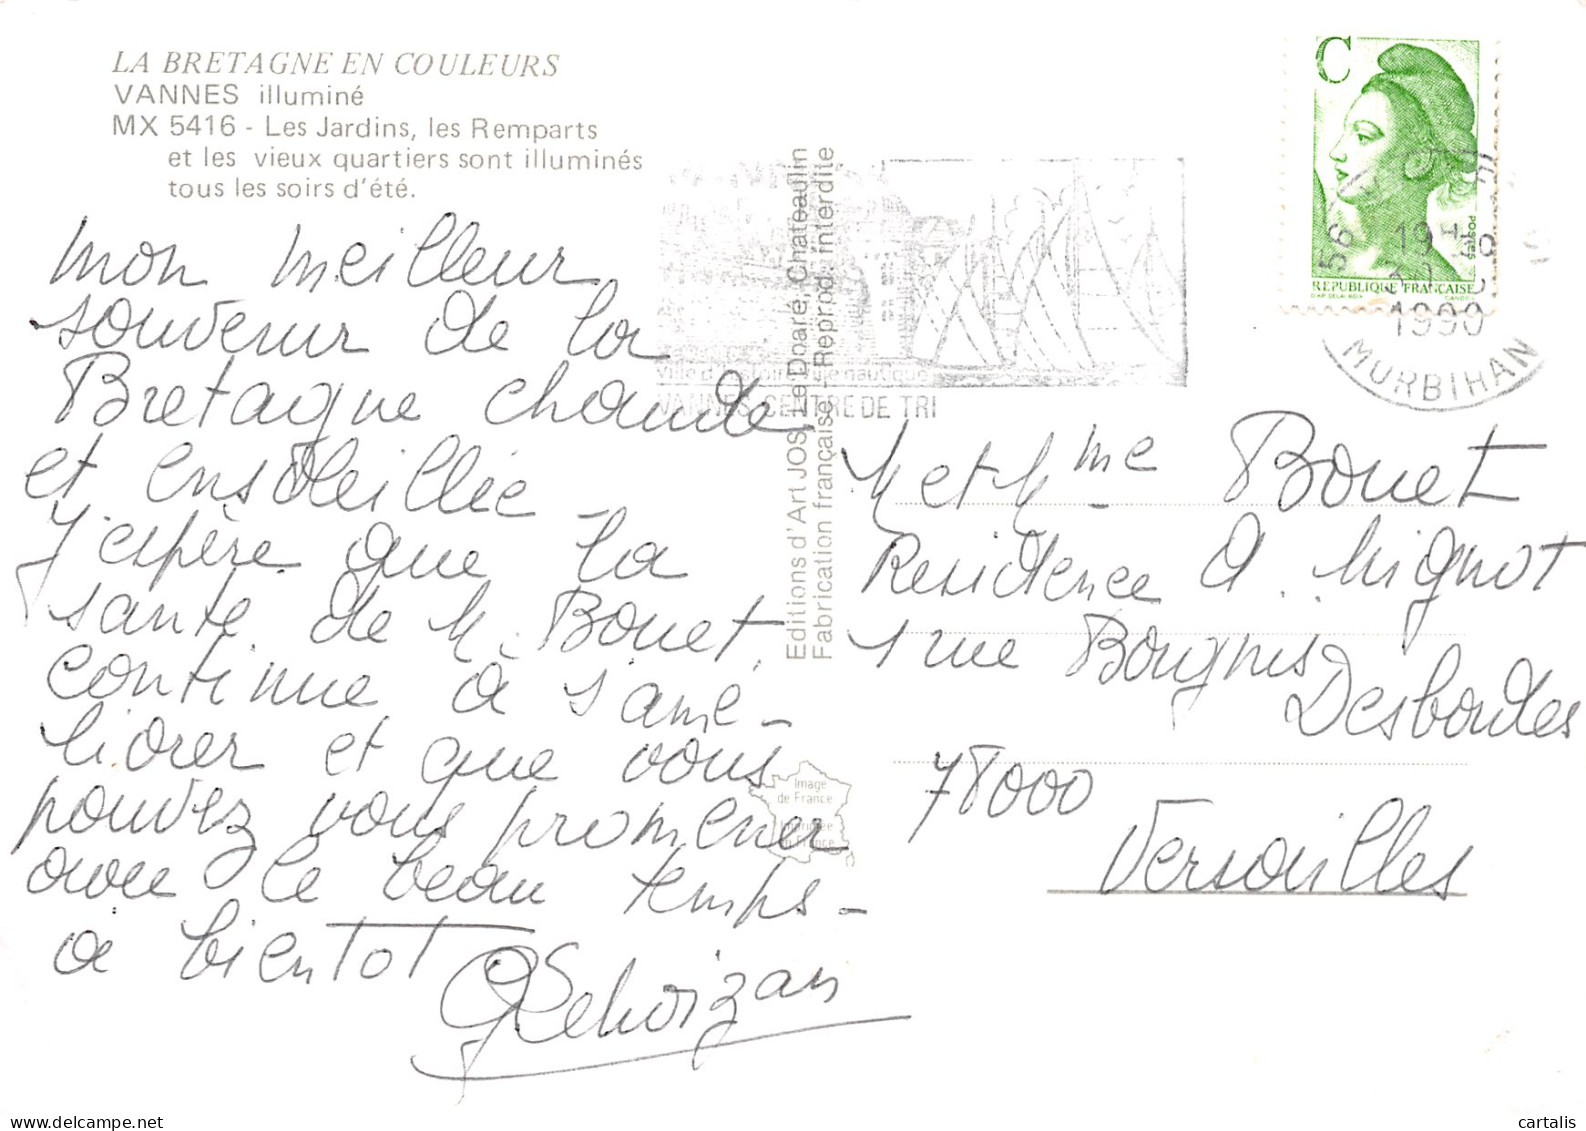 LA BRETAGNE EN COULEURS
VANNES illuminé
MX 5416 - Les Jardins, les Remparts
et les vieux quartiers sont illuminés
tous les soirs d'été.
mon meilleur
souvenir de la
Bretagne chaude
et ensoleillée -
J'espère que la
santé de M. Bouet
continue à s'amé-
liorer et que vous
pouvez vous promener
avec le beau temps -
à bientôt
Editions d'Art JOS Le Doaré, Chateaulin
Fabrication française - Reprod. interdite
Image
de France
Imprimée
en France
VANNES CENTRE DE TRI
C
POSTES
REPUBLIQUE FRANCAISE
56
19
1990
MORBIHAN
M et Mme Bouet
Residence A. Mignot
1 rue Borgnis
Desbordes
78000
Versailles
cartalis